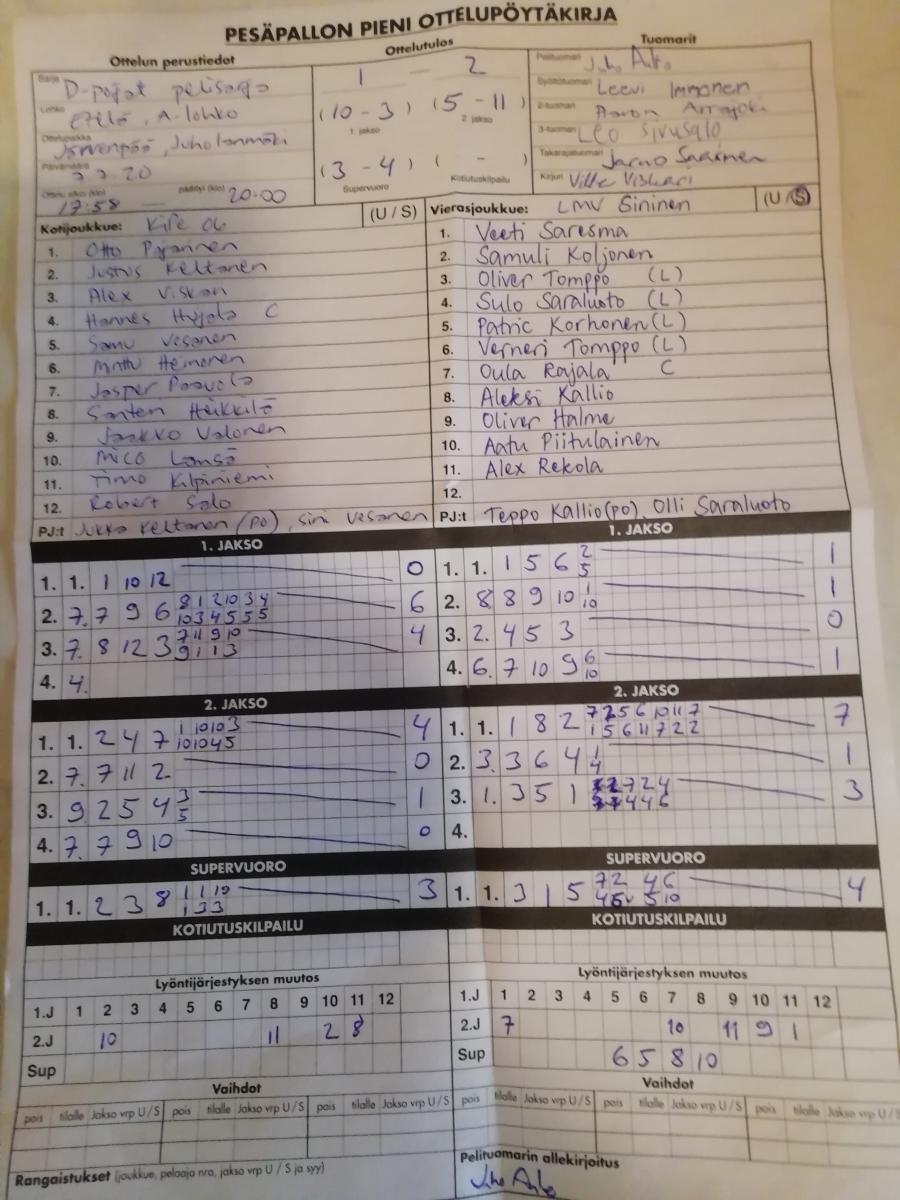 PESÄPALLON PIENI OTTELUPÖYTÄKIRJA
Ottelun perustiedot
Sarja D-pojat pelisarja
Lohko Etelä, A-lohko
Ottelupaikka Järvenpää, Juholanmäki
Päivämäärä 7.7.20
Ottelu alkoi (klo) 17:58 — päättyi (klo) 20:00
Ottelutulos
1 — 2
(10 - 3) (5 - 11)
1. jakso 2. jakso
(3 - 4) ( - )
Supervuoro Kotiutuskilpailu
Tuomarit
Pelituomari Juho
Syöttötuomari Leevi Immonen
2-tuomari Aaron
3-tuomari Leo Sivusalo
Takarajatuomari Jarno Saarinen
Kirjuri Ville Viskari
Kotijoukkue: Kipe 06 (U / S)
1. Otto Pajarinen
2. Justus Keltanen
3. Alex Viskari
4. Hannes Hyjala C
5. Samu Vesanen
6. Minttu Heinonen
7. Jasper Paavola
8. Santeri Heikkilä
9. Jaakko Valonen
10. Mico Länsä
11. Timo Kilpiniemi
12. Robert Salo
PJ:t Jukka Keltanen (po), Sini Vesanen
Vierasjoukkue: LMV Sininen (U / S)
1. Veeti Saresma
2. Samuli Koljonen
3. Oliver Tomppo (L)
4. Sulo Saraluoto (L)
5. Patric Korhonen (L)
6. Verneri Tomppo (L)
7. Oula Rajala C
8. Aleksi Kallio
9. Oliver Halme
10. Aatu Piitulainen
11. Alex Rekola
12.
PJ:t Teppo Kallio (po), Olli Saraluoto
1. JAKSO
1. 1. 1 10 12 0
2. 7. 7 9 6 8 1 2 10 3 4 6
10 3 4 5 5 5
3. 7. 8 12 3 7 11 9 10 4
9 1 1 3
4. 4.
1. JAKSO
1. 1. 1 5 6 2 1
5
2. 8 8 9 10 1 1
10
3. 2. 4 5 3 0
4. 6. 7 10 9 6 1
10
2. JAKSO
1. 1. 2 4 7 1 10 10 3 4
10 10 4 5
2. 7. 7 11 2 0
3. 9 2 5 4 3 1
5
4. 7. 7 9 10 0
2. JAKSO
1. 1. 1 8 2 7 2 5 6 10 11 7 7
1 5 6 11 7 2 2
2. 3. 3 6 4 1 1
4
3. 1. 3 5 1 7 2 4 3
4 4 6
4.
SUPERVUORO
1. 1. 2 3 8 1 1 10 3
1 3 3
SUPERVUORO
1. 1. 3 1 5 7 2 4 6 4
5 10
KOTIUTUSKILPAILU
KOTIUTUSKILPAILU
Lyöntijärjestyksen muutos
1.J 1 2 3 4 5 6 7 8 9 10 11 12
2.J 10 11 2 8
Sup
Lyöntijärjestyksen muutos
1.J 1 2 3 4 5 6 7 8 9 10 11 12
2.J 7 10 11 9 1
Sup 6 5 8 10
Vaihdot
pois tilalle Jakso vrp U / S pois tilalle Jakso vrp U / S pois tilalle Jakso vrp U / S
Vaihdot
pois tilalle Jakso vrp U / S pois tilalle Jakso vrp U / S pois tilalle Jakso vrp U / S
Rangaistukset (joukkue, pelaaja nro, jakso vrp U / S ja syy)
Pelituomarin allekirjoitus
Juho